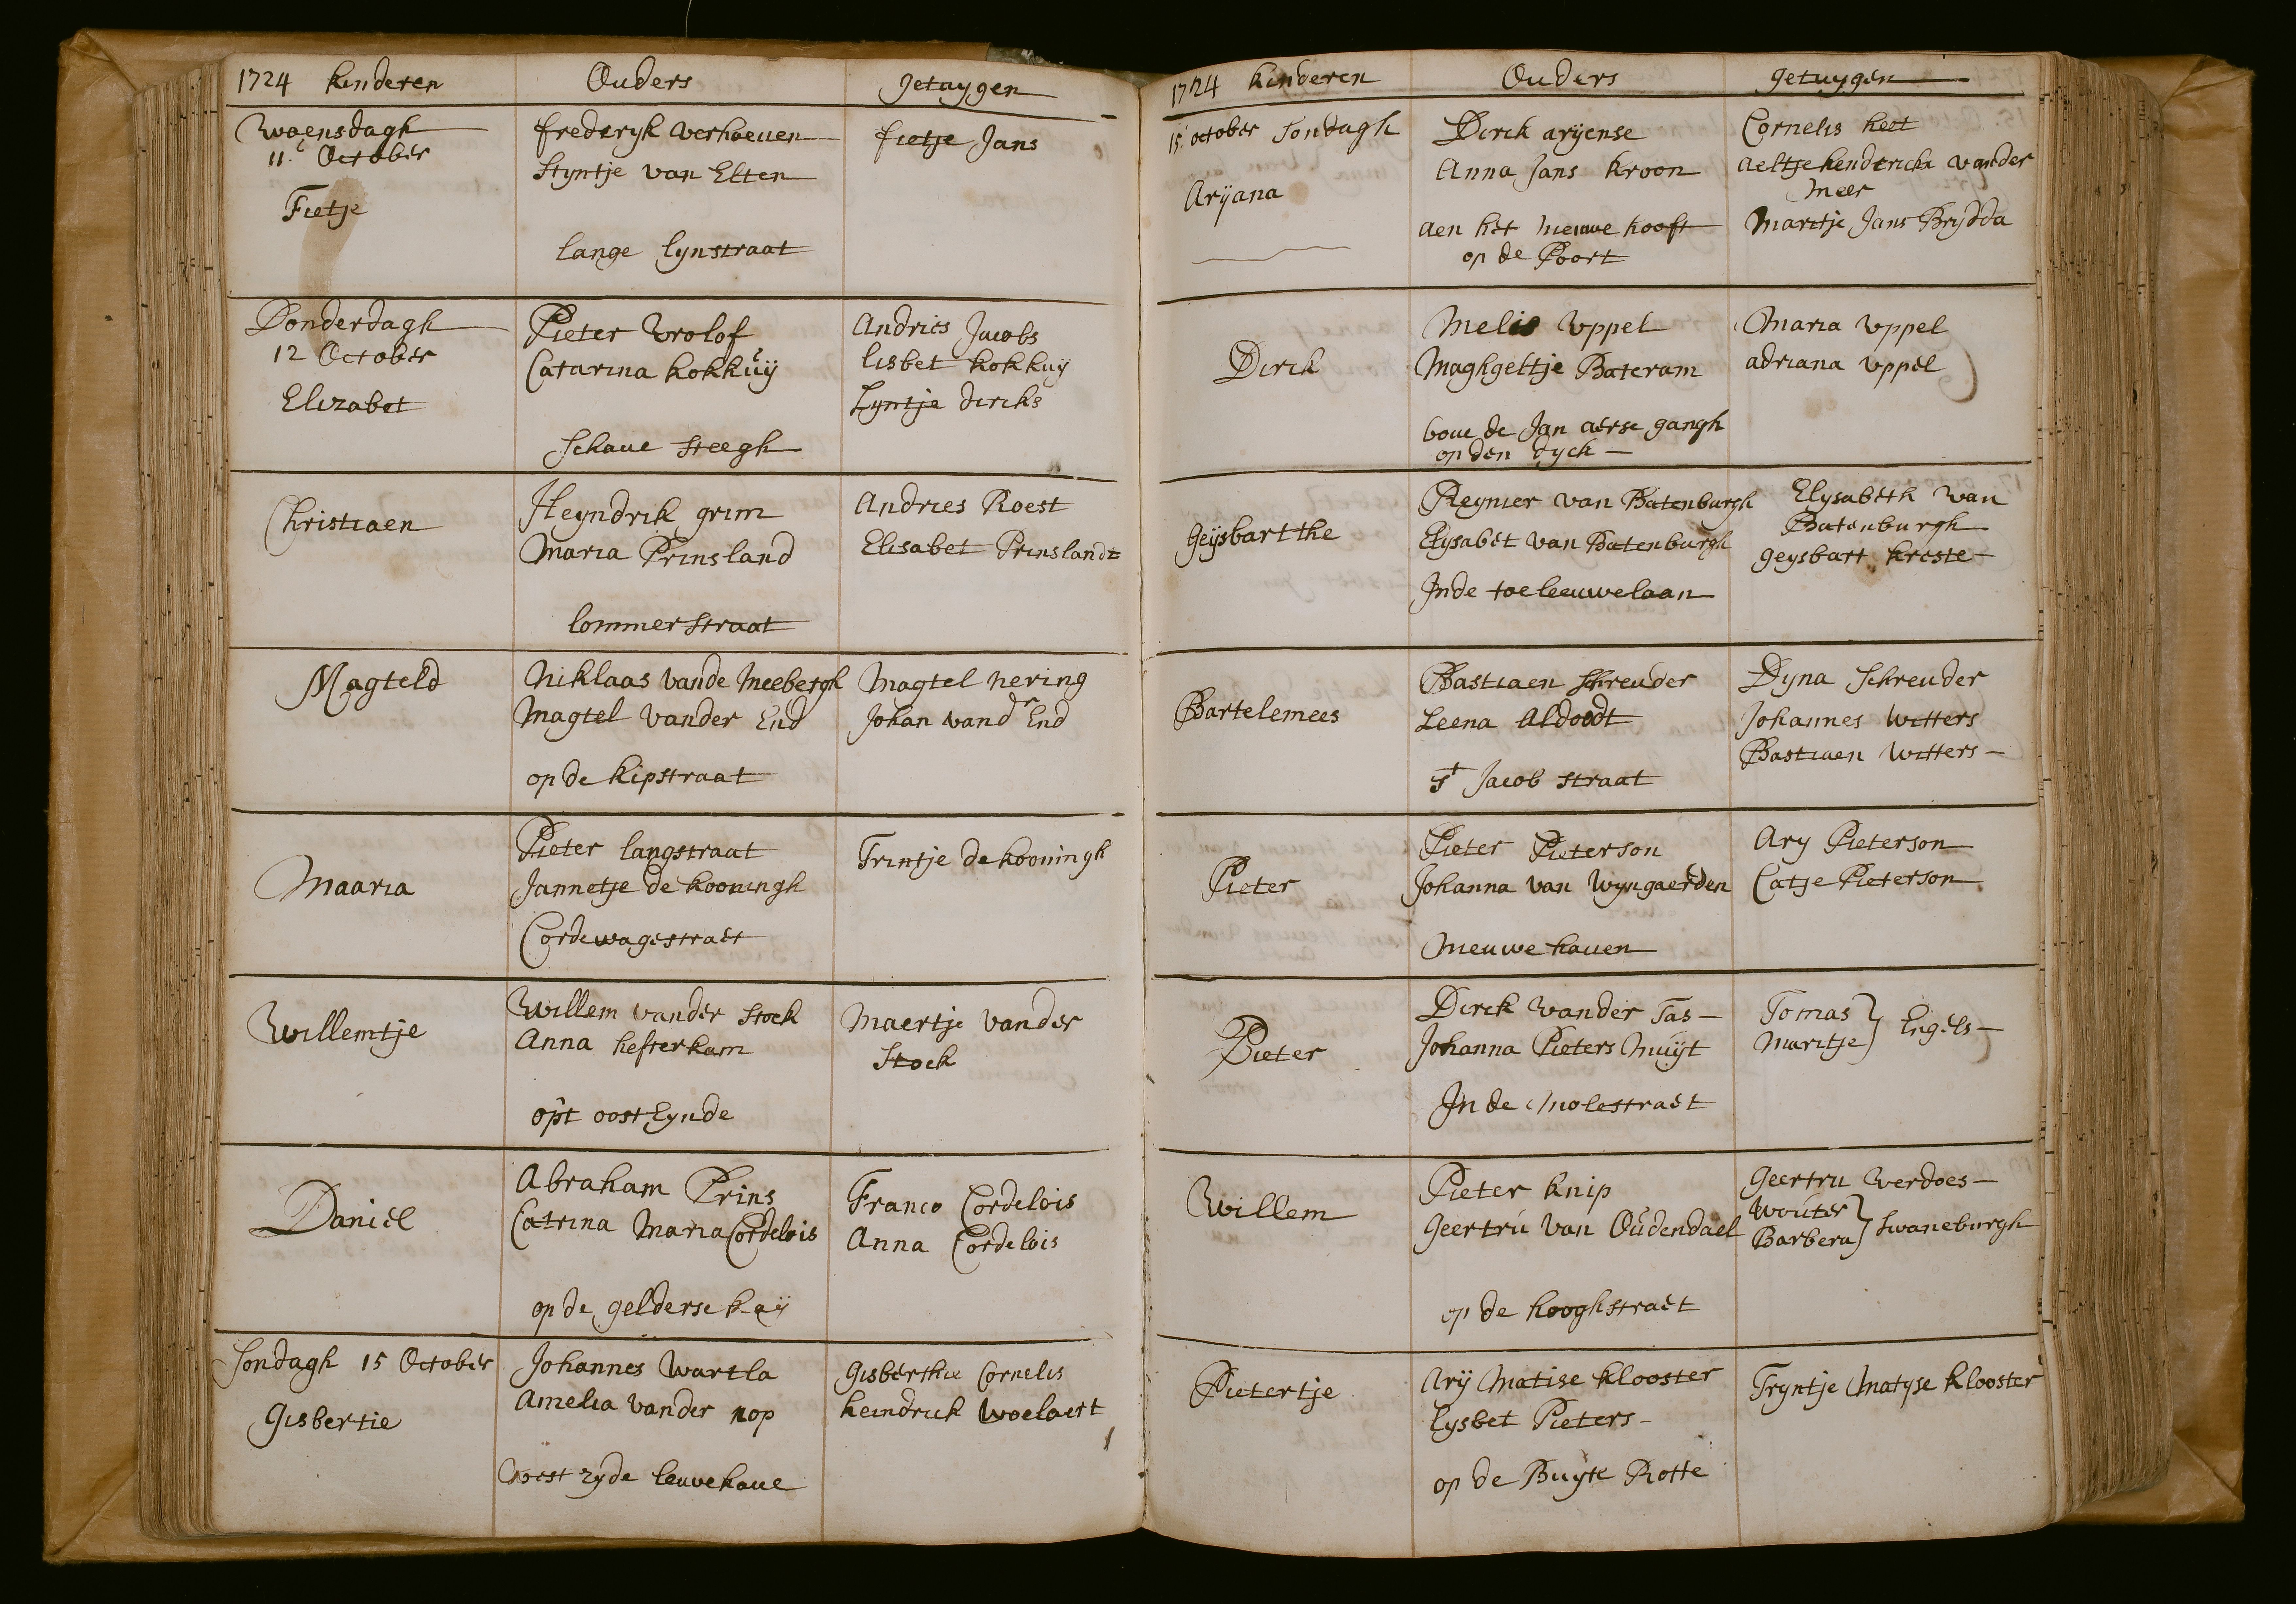 1724 kinderen Ouders getuygen
Woensdagh
11. October
Fietje
frederyk verhoeven
Styntje van Elten
lange lynstraat
fietje Jans
Donderdagh
12 October
Elizabet
Pieter Vrolof
Catarina kokkuÿ
Schave steegh
Andries Jacobs
lisbet kokkuÿ
Lyntje dircks
Christiaen
Heyndrik grim
Maria Prinsland
lommerstraat
Andries Roest
Elisabet Prinslandt
Magteld
Niklaas vande Meebergh
Magtel vander End
op de kipstraat
Magtel nering
Johan vandr End
Maaria
Pieter langstraat
Jannetje de kooningh
Cordewagestraet
Trintje de kooningh
Willemtje
Willem vander stock
Anna hesterkam
opt oost Eynde
Maertje vander
Stock
Daniel
Abraham Prins
Catrina Maria Cordelois
op de gelderse kaÿ
Franco Cordelois
Anna Cordelois
Sondagh 15 October
Gisbertie
Johannes wartla
Amelia vander nop
West zyde leuvehave
Gisberthie Cornelis
heindrick woelaert
1724 kinderen Ouders getuygen
15. october Sondagh
Arÿana
Dirck arÿense
Anna Jans kroon
aen het nieuwe hooft
op de Poort
Cornelis heet
aeltje hendrickx vander
Meer
Maritje Jans Brÿdda
Dirck
Melis Uppel
Maghgeltje Bateram
bove de Jan aerse gangh
op den dyck
Maria Uppel
adriana Uppel
Geÿsbartthe
Reynier van Batenburgh
Elysabet van Batenburgh
Inde toeleeuwelaan
Elysabeth van
Batenburgh
geysbart kreste
Bartelemees
Bastiaen Schreuder
Leena Aldoodt
St Jacob straat
Dyna Schreuder
Johannes Witters
Bastiaen Witters
Pieter
Pieter Pieterson
Johanna van Wyngaerden
Nieuwe haven
Ary Pieterson
Catje Pieterson
Pieter
Dirck vander Tas
Johanna Pieters Muÿt
In de Molestraet
Tomas
Maritje } Engels
Willem
Pieter knip
Geertru van Oudendael
op de hooghstraet
Geertru verdoes
Wouter
Barbera } Swaneburgh
Pietertje
Arÿ Matise klooster
lysbet Pieters
op de Buÿte Rotte
Tryntje Matyse klooster